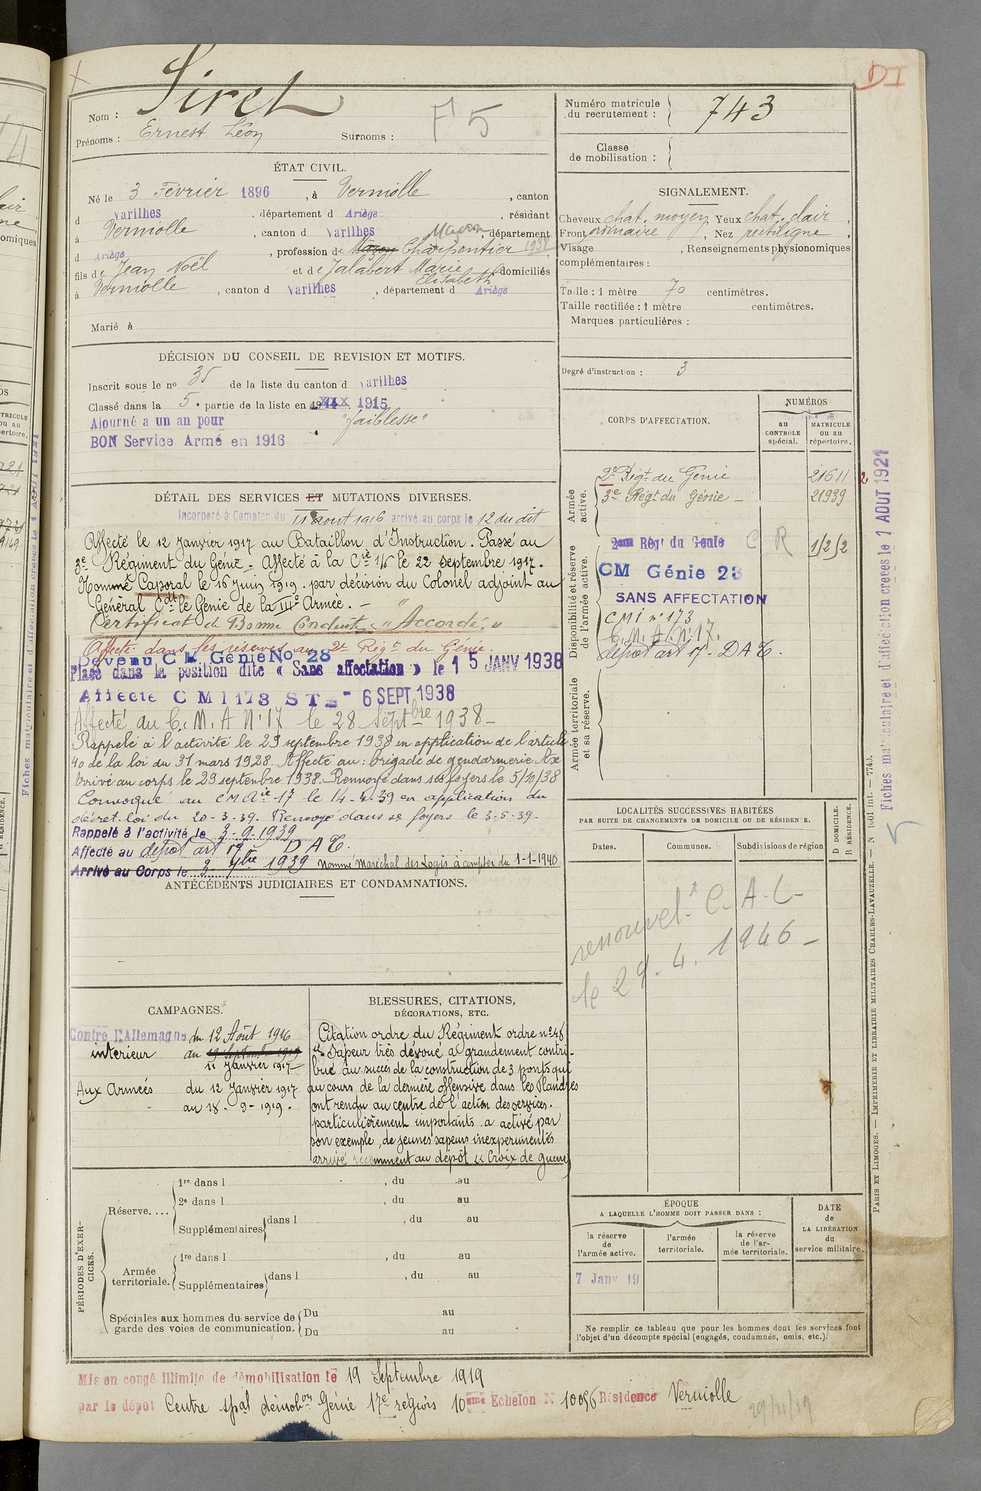 DI
Nom : Siret
Prénoms : Ernest Léon Surnoms : F 5
ÉTAT CIVIL.
Né le 3 Février 1896, à Verniolle, canton
d Varilhes, département d Ariège, résidant
à Verniolle, canton d Varilhes, département
Maçon
d Ariège, profession de Maçon Charpentier
fils de Jean Noël et de Jalabert Marie Elisabeth domiciliés
à Verniolle, canton d Varilhes, département d Ariège
Marié à
DÉCISION DU CONSEIL DE REVISION ET MOTIFS.
Inscrit sous le n° 35 de la liste du canton d Varilhes
Classé dans la 5e partie de la liste en 1915
Ajourné a un an pour "faiblesse"
BON Service Armé en 1916
DÉTAIL DES SERVICES ET MUTATIONS DIVERSES.
Incorporé à Compter du 11 août 1916 arrivé au corps le 12 du dit
Affecté le 12 Janvier 1917 au Bataillon d'Instruction. Passé au
3e Régiment du Génie. Affecté à la Cie 1/6 le 22 septembre 1917.
Nommé Caporal le 16 Juin 1919. par décision du Colonel adjoint au
Général Cdt le Génie de la IIIe Armée. -
Certificat de Bonne Conduite "Accordé"
Affecté dans les réserves au 2e Régt du Génie.
Devenu C M Génie No 28
Placé dans la position dite « Sans affectation » le 15 JANV 1938
Affecté C M I 173 ST 6 SEPT 1938
Affecté du C. M. A N° 17 le 28 Septbre 1938 -
Rappelé à l'activité le 29 septembre 1938 en application de l'article
40 de la loi du 31 mars 1928. Affecté au: brigade de gendarmerie
Arrivé au corps le 29 septembre 1938. Renvoyé dans ses foyers le 5/10/38
Convoqué au CM Aie 17 le 14-4-39 en application du
décret-loi du 20-3-39. Renvoyé dans ses foyers le 3-5-39.
Rappelé à l'activité le 3-9-1939
Affecté au dépôt art 17 D A T.
Arrivé au Corps le 3 7bre 1939 Nommé Maréchal des Logis à compter du 1-1-1940
ANTÉCÉDENTS JUDICIAIRES ET CONDAMNATIONS.
CAMPAGNES.
Contre l'Allemagne du 12 Août 1916
intérieur au 19 Septembre 1919
11 Janvier 1917
Aux Armées du 12 Janvier 1917
au 18-9-1919.
BLESSURES, CITATIONS,
DÉCORATIONS, ETC.
Citation ordre du Régiment ordre n° 48
Sapeur très dévoué a grandement contri-
bué au succès de la construction de 3 ponts qui
au cours de la dernière offensive dans les Flandres
ont rendu au centre de l'action des services
particulièrement importants. a activé par
son exemple, de jeunes sapeurs inexpérimentés
arrivé récemment au dépôt. Croix de guerre
PÉRIODES D'EXERCICES.
Réserve. . . .
1re dans l , du au
2e dans l , du au
Supplémentaires dans l , du au
Armée territoriale.
1re dans l , du au
Supplémentaires dans l , du au
Spéciales aux hommes du service de garde des voies de communication.
Du au
Du au
Mis en congé illimité de démobilisation le 19 Septembre 1919
par le dépôt Centre spal démobon Génie 17e région 10ème Echelon N° 10096 Résidence Verniolle
Numéro matricule
du recrutement : 743
Classe
de mobilisation :
SIGNALEMENT.
Cheveux chat. moyen Yeux chat. clair
Front ordinaire, Nez rectiligne,
Visage , Renseignements physionomiques
complémentaires :
Taille : 1 mètre 70 centimètres.
Taille rectifiée : 1 mètre centimètres.
Marques particulières :
Degré d'instruction : 3
CORPS D'AFFECTATION.
NUMÉROS
au CONTRÔLE spécial.
MATRICULE ou au répertoire.
Armée active.
2e Régt du Génie 21611
3e Régt du Génie - 21939
Disponibilité et réserve de l'armée active.
2ème Régt du Génie C R 1/2/2
CM Génie 28
SANS AFFECTATION
C M I n° 173
C. M. A. N° 17.
dépôt art 17. D A T.
Armée territoriale et sa réserve.
LOCALITÉS SUCCESSIVES HABITÉES
PAR SUITE DE CHANGEMENTS DE DOMICILE OU DE RÉSIDENCE.
Dates.
Communes.
Subdivisions de région
D DOMICILE.
R RÉSIDENCE.
renouvelt C. A. C-
le 29. 4. 1946 -
ÉPOQUE
A LAQUELLE L'HOMME DOIT PASSER DANS :
la réserve de l'armée active.
l'armée territoriale.
la réserve de l'armée territoriale.
DATE de LA LIBÉRATION du service militaire.
7 Janv 19
Ne remplir ce tableau que pour les hommes dont les services font
l'objet d'un décompte spécial (engagés, condamnés, omis, etc.).
Fiches matriculaire et d'affectation créées le 1 AOUT 1921
PARIS ET LIMOGES. — IMPRIMERIE ET LIBRAIRIE MILITAIRES CHARLES-LAVAUZELLE. — N° 1001 int. — 7743.